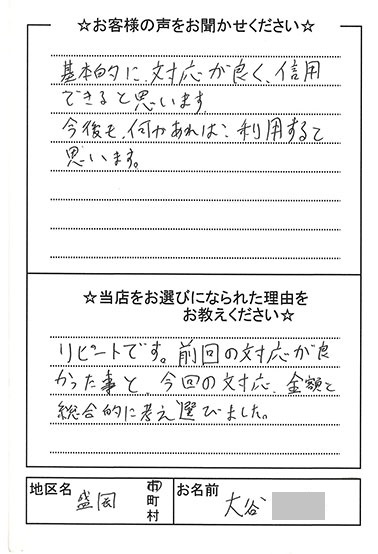 ☆お客様の声をお聞かせください☆
基本的に、対応が良く、信用
できると思います
今後も、何かあれば、利用すると
思います。
☆当店をお選びになられた理由を
お教えください☆
リピートです。前回の対応が良
かった事と、今回の対応、金額と
総合的に考え選びました。
地区名 盛岡 市町村 お名前 大谷